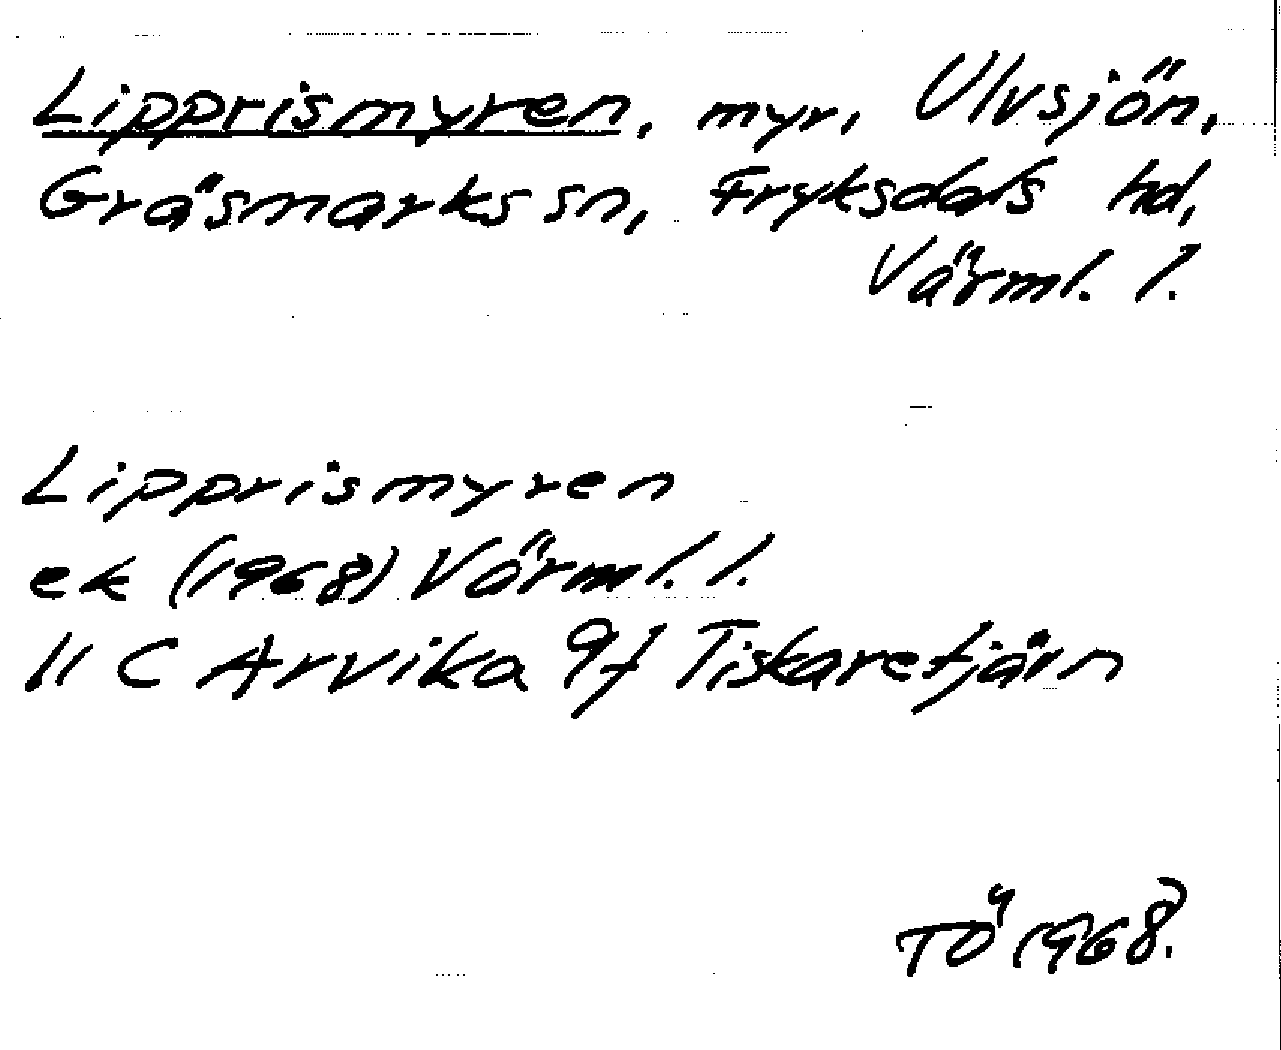 Lipprismyren, myr, Ulvsjön,
Gräsmarks sn, Fryksdals hd,
Värml. l.
Lipprismyren
ek (1968) Värml. l.
11 C Arvika 9f Tiskaretjärn
TÖ 1968.